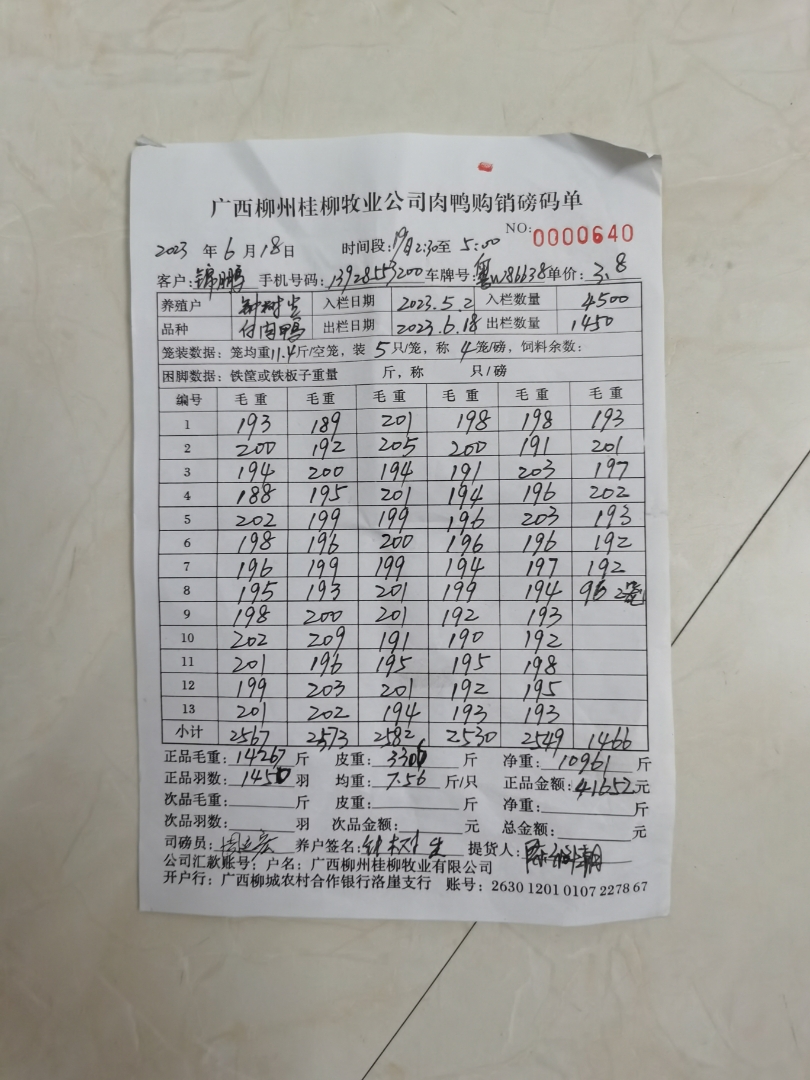 广西柳州桂柳牧业公司肉鸭购销磅码单
NO: 0000640
2023 年 6 月 18 日 时间段: 2:30 至 5:00
客户: 锦鹏 手机号码: 13928553200 车牌号: 粤W86638 单价: 3.8
养殖户 钟树生 入栏日期 2023.5.2 入栏数量 4500
品种 付肉鸭 出栏日期 2023.6.18 出栏数量 1450
笼装数据: 笼均重 11.4 斤/空笼, 装 5 只/笼, 称 4 笼/磅, 饲料余数:
困脚数据: 铁筐或铁板子重量 斤, 称 只/磅
编号 毛重 毛重 毛重 毛重 毛重 毛重
1 193 189 201 198 198 193
2 200 192 205 200 191 201
3 194 200 194 191 203 197
4 188 195 201 194 196 202
5 202 199 199 196 203 193
6 198 196 200 196 196 192
7 196 199 199 194 197 192
8 195 193 201 199 194 96 2笼
9 198 200 201 192 193
10 202 209 191 190 192
11 201 196 195 195 198
12 199 203 201 192 195
13 201 202 194 193 193
小计 2567 2573 2582 2530 2549 1466
正品毛重: 14267 斤 皮重: 3306 斤 净重: 10961 斤
正品羽数: 1450 羽 均重: 7.56 斤/只 正品金额: 41652 元
次品毛重: 斤 皮重: 斤 净重: 斤
次品羽数: 羽 次品金额: 元 总金额: 元
司磅员: 养户签名: 钟树生 提货人:
公司汇款账号: 户名: 广西柳州桂柳牧业有限公司
开户行: 广西柳城农村合作银行洛崖支行 账号: 2630 1201 0107 2278 67